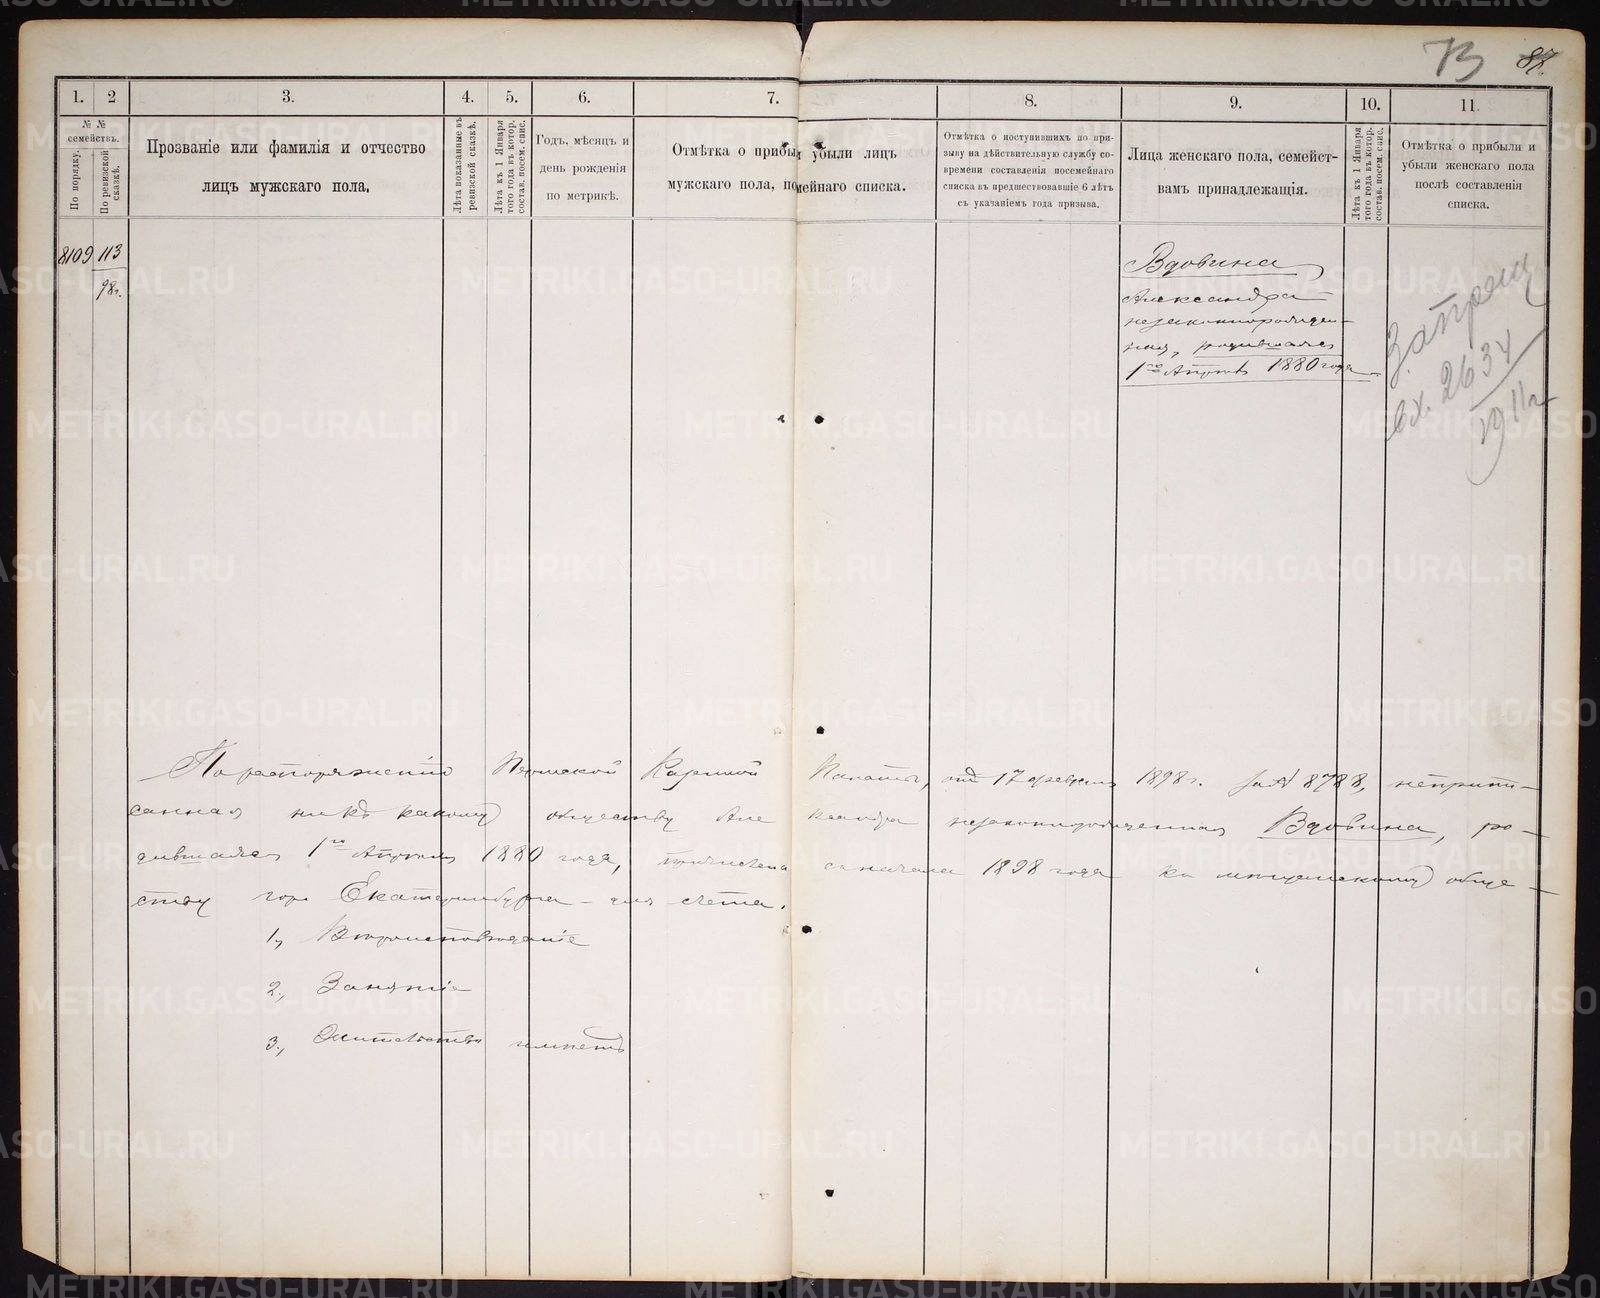 73 87.
1. 2 3. 4. 5. 6. 7. 8. 9. 10. 11.
№ № семействъ.
По порядку.
По ревизской сказкѣ.
Прозваніе или фамилія и отчество
лицъ мужскаго пола.
Лѣта показанныя въ
ревизской сказкѣ.
Лѣта къ 1 Января
того года въ котор.
состав. посем. спис.
Годъ, мѣсяцъ и
день рожденія
по метрикѣ.
Отмѣтка о прибы убыли лицъ
мужскаго пола, по мейнаго списка.
Отмѣтка о поступившихъ по при-
зыву на дѣйствительную службу со-
времени составленія посемейнаго
списка въ предшествовавшіе 6 лѣтъ
съ указаніемъ года призыва.
Лица женскаго пола, семейст-
вамъ принадлежащія.
Лѣта къ 1 Января
того года въ котор.
состав. посем. спис.
Отмѣтка о прибыли и
убыли женскаго пола
послѣ составленія
списка.
8109 113
98г.
Вдовина
Александра
незаконнорожден-
ная, родившаяся
1го Апрѣля 1880 года
Запрещ
вх. 2634
1911г
По распоряженію Пермской Казенной Палаты, отъ 17 февраля 1898г. за № 8788, неприпи-
санная ни къ какому обществу Александра незаконнорожденная Вдовина, ро-
дившаяся 1го Апрѣля 1880 года, причислена съ начала 1898 года къ мѣщанскому обще-
ству гор Екатеринбурга - для счета.
1, Вѣроисповѣданіе
2, Занятіе
3, Жительство имѣетъ
METRIKI.GASO-URAL.RU